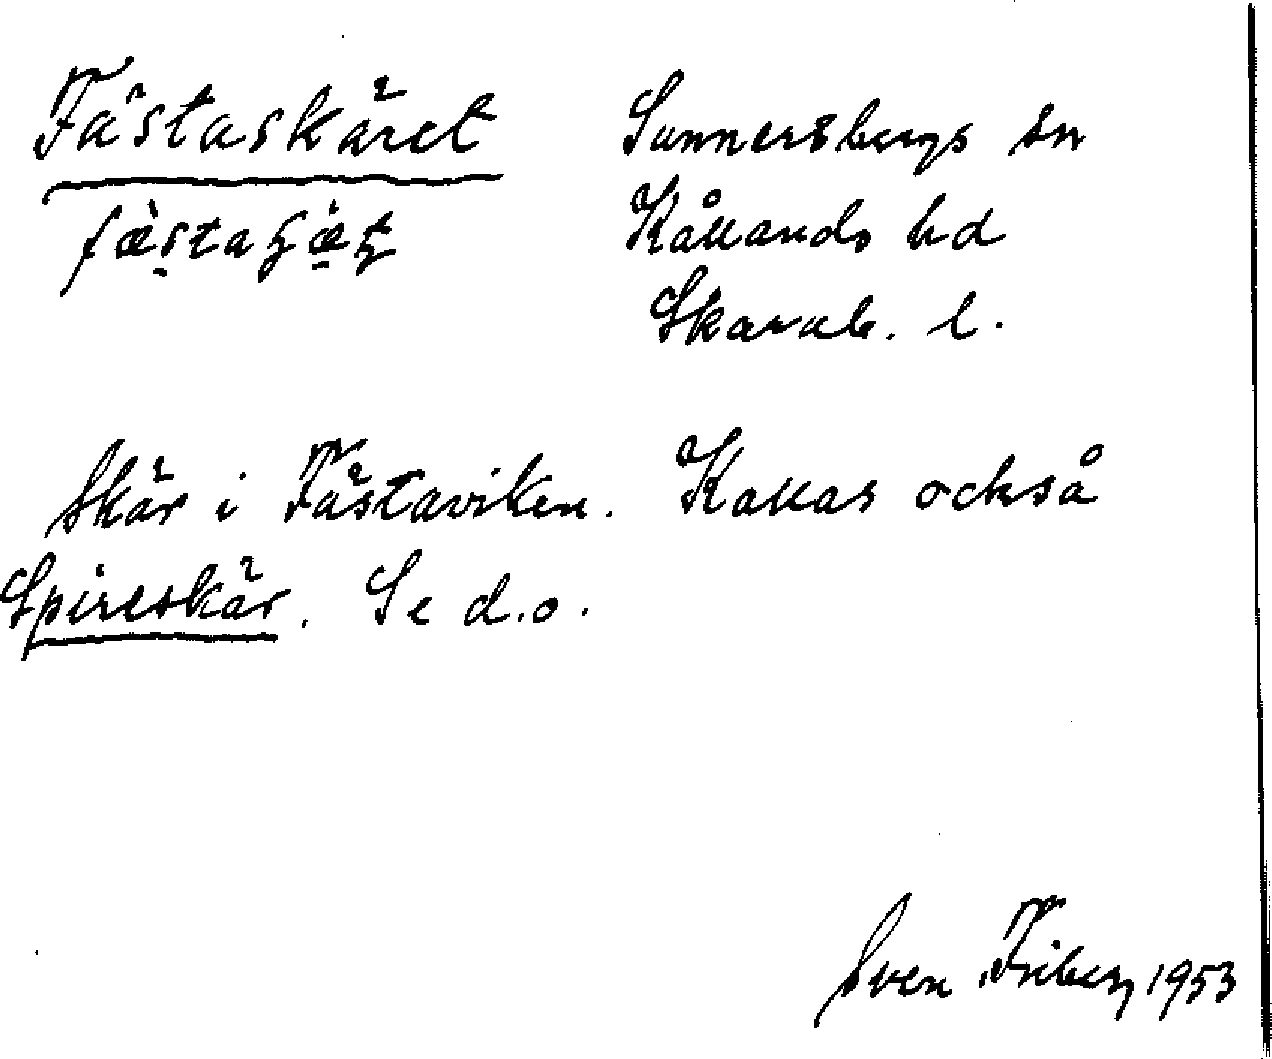 Fästaskäret
Sunnersbergs sn
Kållands hd
Skarab. l.
Skär i Fästaviken. Kallas också
Spireskär. Se d.o.
Sven Friberg 1953